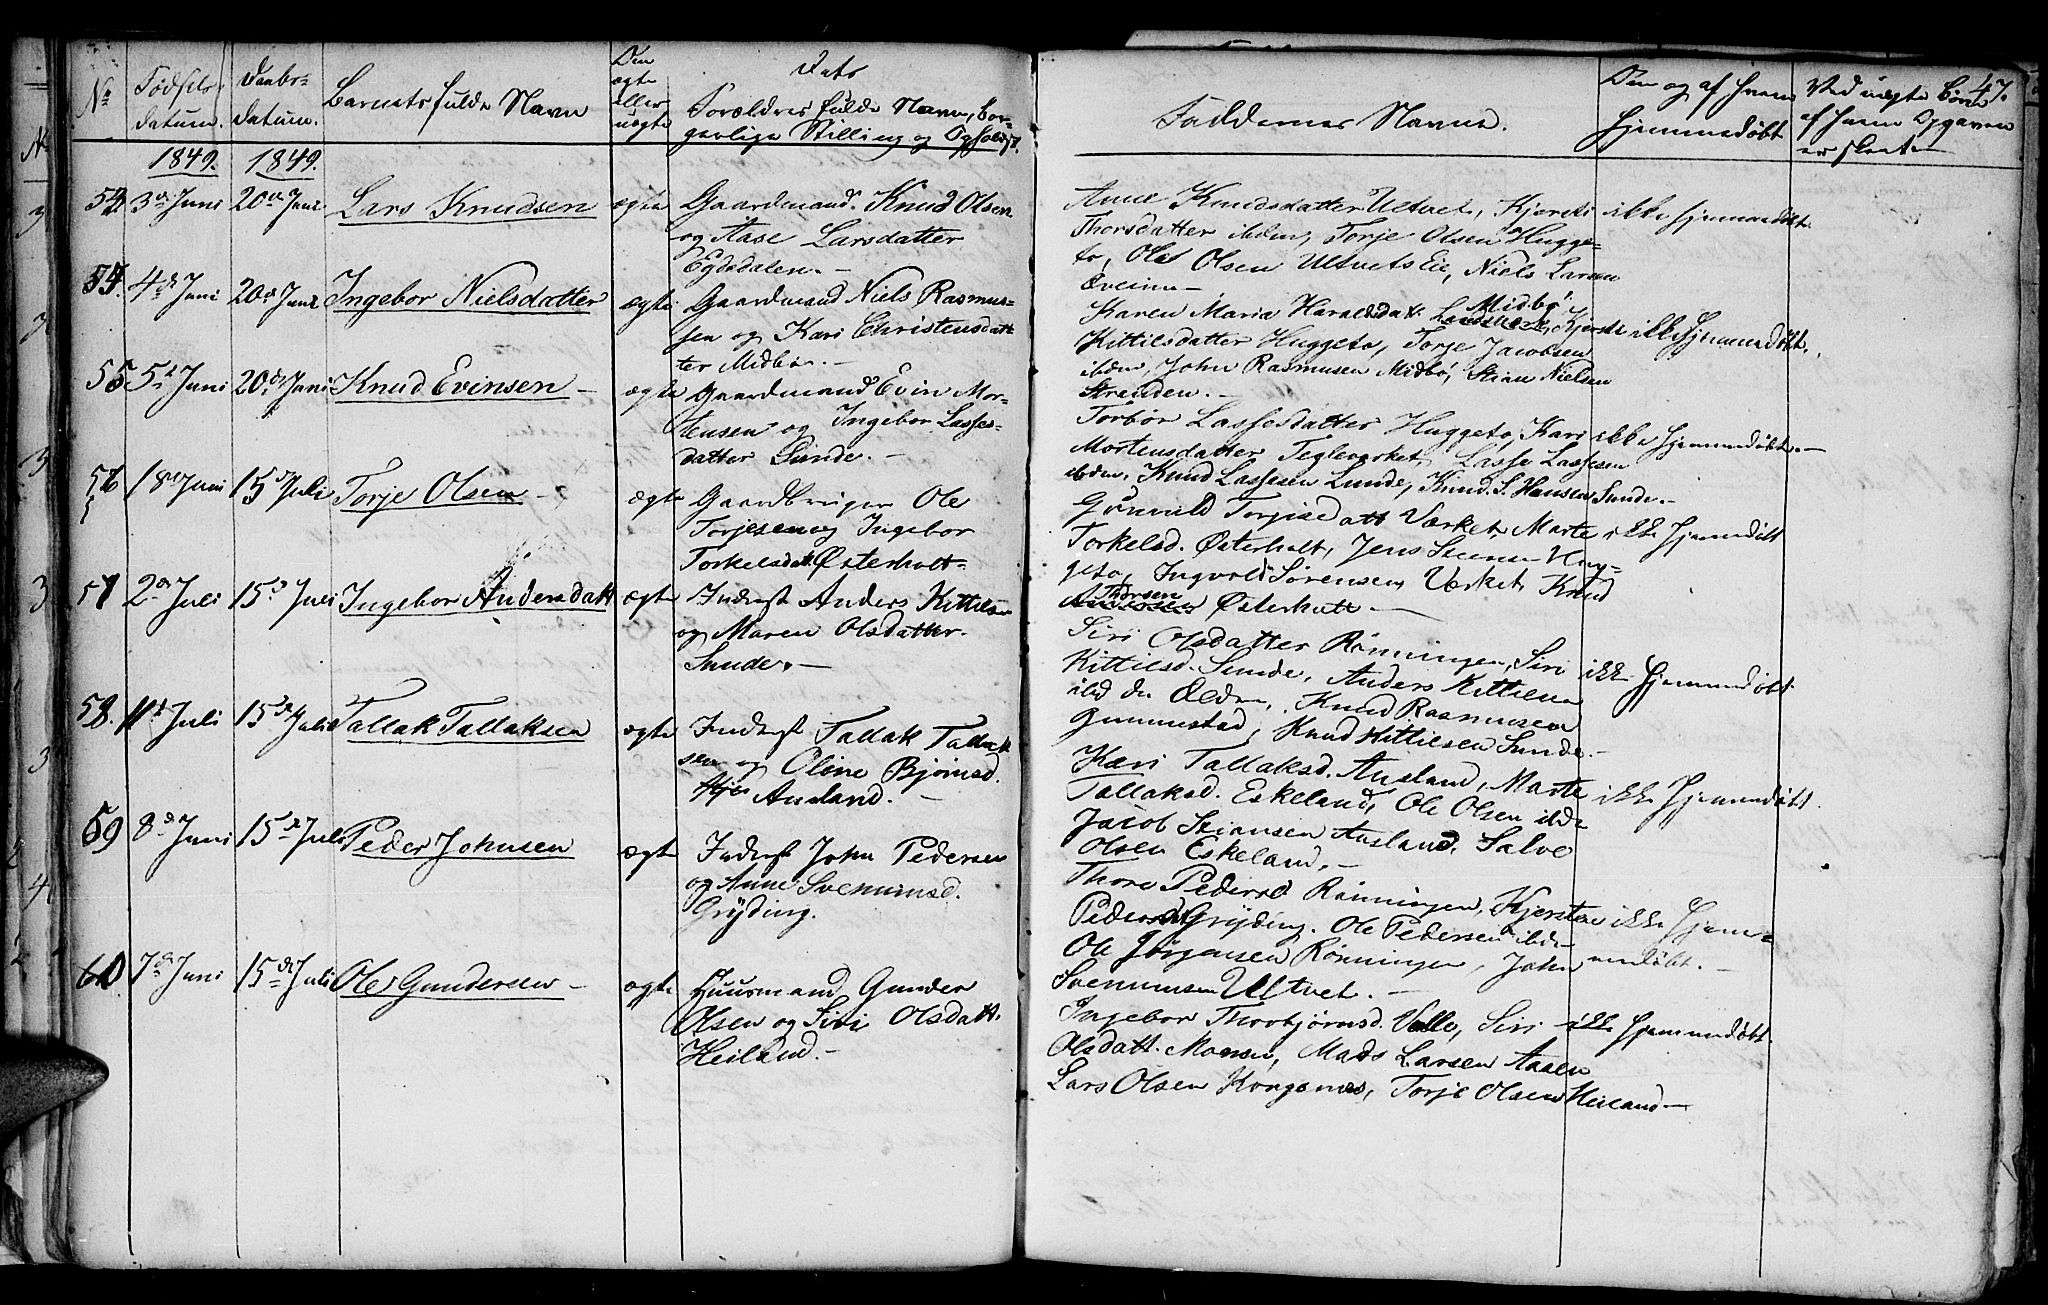 No
Fødsels-
datum.
Daabs-
datum.
Barnets fulde Navn
Den
ægte
eller
uægte
Dets
Forældres fulde Navn, Bor-
gerlige Stilling og Opholdst.
Faddernes Navne.
Om og af hvem
hjemmedøbt
Ved uægte Børn
af hvem Opgaven
er skeet
47.
1849. 1849.
53 3de Juni 20de Juni Lars Knudsen ægte Gaardmand Knud Olsen
og Aase Larsdatter
Egdedalen.-
Anne Knudsdatter Ultvet, Kjersti ikke hjemmedøbt.
Thorsdatter ibdm, Torje Olsen Hugge-
to, Ole Olsen Ultvets Eie, Niels Larsen
54. 4de Juni 20de Juni Ingebor Nielsdatter ægte Gaardmand Niels Rasmus-
sen og Kari Christensdat-
ter Midbø.-
Karen Maria Haraldsdatr. Midbø, Kjersti ikke hjemmedøbt.
Kittilsdatter Huggeto, Torje Jacobsen
ibdm, John Rasmusen Midbø, Stian Nielsen
Strenden.-
55 5te Juni 20de Juni Knud Evinsen - ægte Gaardmand Evin Mor-
tensen og Ingebor Lasses-
datter Sunde.-
Torbør Lassesdatter Huggeto, Kari ikke hjemmedøbt.-
Mortensdatter Tegleverket, Lasse Lassesen
ibdm, Knud Lassesen Lunde, Knud S. Hansen Sunde.-
56 18de Juni 15de Juli Torje Olsen - ægte Gaardbruger Ole
Torjesen og Ingebor
Torkelsdatt. Østerholt-
Gunvald Torjusdatt Værket, Marte ikke hjemmedøbt
Torkelsd. Østerholt, Jens Steensen Hug-
geto, Ingvold Sørensen Værket, Knud
Thorsen Østerholt.-
57 2den Juli 15de Juli Ingebor Andersdatt ægte Inderst Anders Kittilsen
og Maren Olsdatter.
Sunde.-
Siri Olsdatter Rønningen, Siri ikke hjemmedøbt
Kittilsd. Sunde, Anders Kittilsen
Knud Rasmusen
Gummestad, Knud Kittilsen Sunde.-
58. 11te Juli 15de Juli Tallak Tallaksen ægte Inderst Tallak Tallak-
sen og Oline Bjørnsd.
Ausland.-
Kari Tallaksd. Ausland, Marte ikke hjemmedøbt.
Tallaksd. Eskeland, Ole Olsen ibd.
Jacob Stiansen Ausland, Salve
Olsen Eskeland.-
59 8de Juni 15de Juli Peder Johnsen ægte Inderst John Pedersen
og Anne Svenumsd.
Gryding.
Thore Pedersd Rønningen, Kjersten ikke hjem-
Pedersd. Gryding. Ole Pedersen ibd-
Ole Jørgensen Rønningen, John medøbt.-
Svenumsen Ultvet.-
60 7de Juni 15de Juli Ole Gundersen - ægte Huusmand Gunder
Olsen og Siri Olsdatt.
Heiland.-
Ingebor Thorbjørnsd. Valle, Siri ikke hjemmedøbt.
Olsdatt. Moen, Mads Larsen Aasen
Lars Olsen Kongsnes, Torje Olsen Heiland-